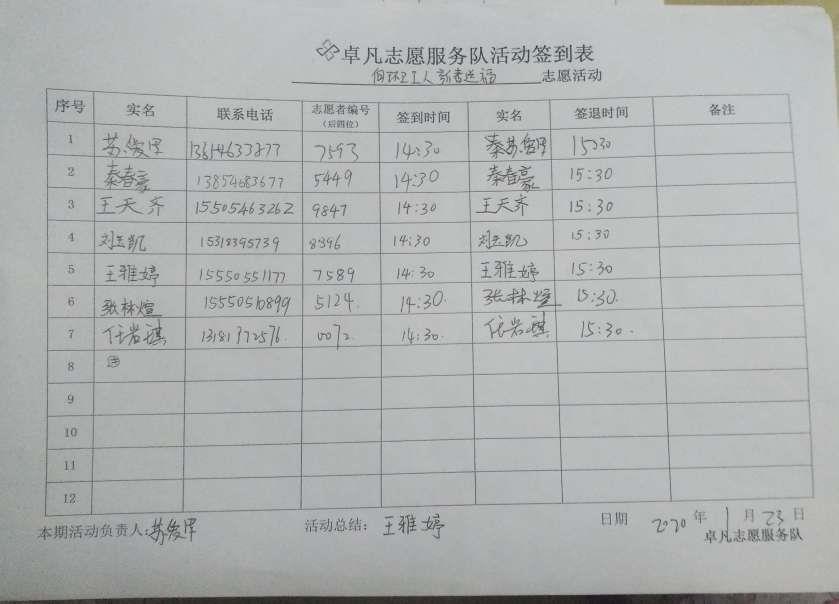 卓凡志愿服务队活动签到表
向环卫工人新春送福 志愿活动
序号 实名 联系电话 志愿者编号 签到时间 实名 签退时间 备注
（后四位）
1 苏俊甲 7593 14:30 苏俊甲 15:30
2 秦春豪 13854683677 5449 14:30 秦春豪 15:30
3 王天齐 15505463262 9847 14:30 王天齐 15:30
4 刘志凯 15318395739 8396 14:30 刘志凯 15:30
5 王雅婷 15550551177 7589 14:30 王雅婷 15:30
6 张林煊 15550510899 5124. 14:30. 张林煊 15:30.
7 任岩祺 13181372576. 0072. 14:30. 任岩祺 15:30.
8
9
10
11
12
本期活动负责人:苏俊甲 活动总结: 王雅婷 日期 2020 年 1 月 23 日
卓凡志愿服务队